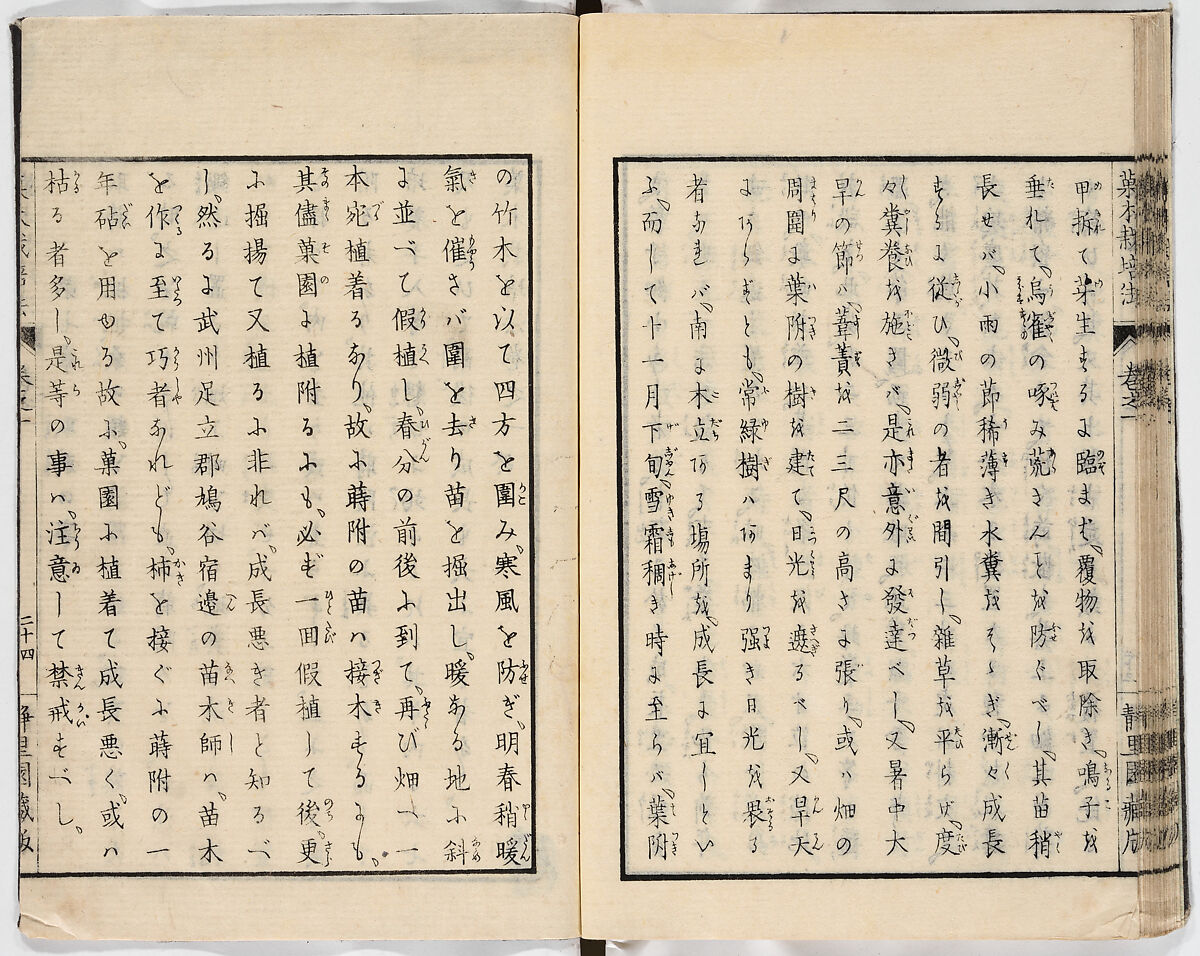 菓木栽培法 卷之一 靜里園藏版
甲拆て芽生するに臨まば、覆物を取除き、鳴子を
垂れて、烏雀の啄み荒さんとを防ぐべし、其苗稍
長せバ、小雨の節稀薄き水糞をそゝぎ、漸々成長
するに従ひ、微弱の者を間引し、雑草を平らげ、度
々糞養を施さバ、是亦意外に發達べし、又暑中大
旱の節ハ、葦簀を二三尺の高さに張り、或ハ畑の
周圍に葉附の樹を建て、日光を遮るべし、又旱天
にあらずとも、常緑樹ハあまり强き日光を畏る
者なれバ、南に木立ある塲所を、成長に宜しとい
ふ、而して十一月下旬雪霜稠き時に至らバ、葉附
の竹木を以て四方を圍み、寒風を防ぎ、明春稍暖
氣を催さバ圍を去り苗を掘出し、暖なる地に斜
に並べて假植し、春分の前後に到て、再び畑へ一
本宛植着るなり、故に蒔附の苗ハ接木するにも、
其儘菓園に植附るにも、必ず一回假植して後、更
に掘揚て又植るに非れバ、成長悪き者と知るべ
し、然るに武州足立郡鳩谷宿邉の苗木師ハ、苗木
を作に至て巧者なれども、柿を接ぐに蒔附の一
年砧を用ゆる故に、菓園に植着て成長悪く、或ハ
枯る者多し、是等の事ハ、注意して禁戒すべし、
卷之一 二十四 靜里園藏版